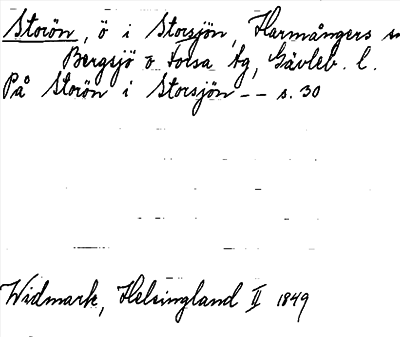 Storön, ö i Storsjön, Harmångers sn
Bergsjö o. Forsa tg, Gävleb. l.
På Storön i Storsjön -- s. 30
Widmark, Helsingland II 1849